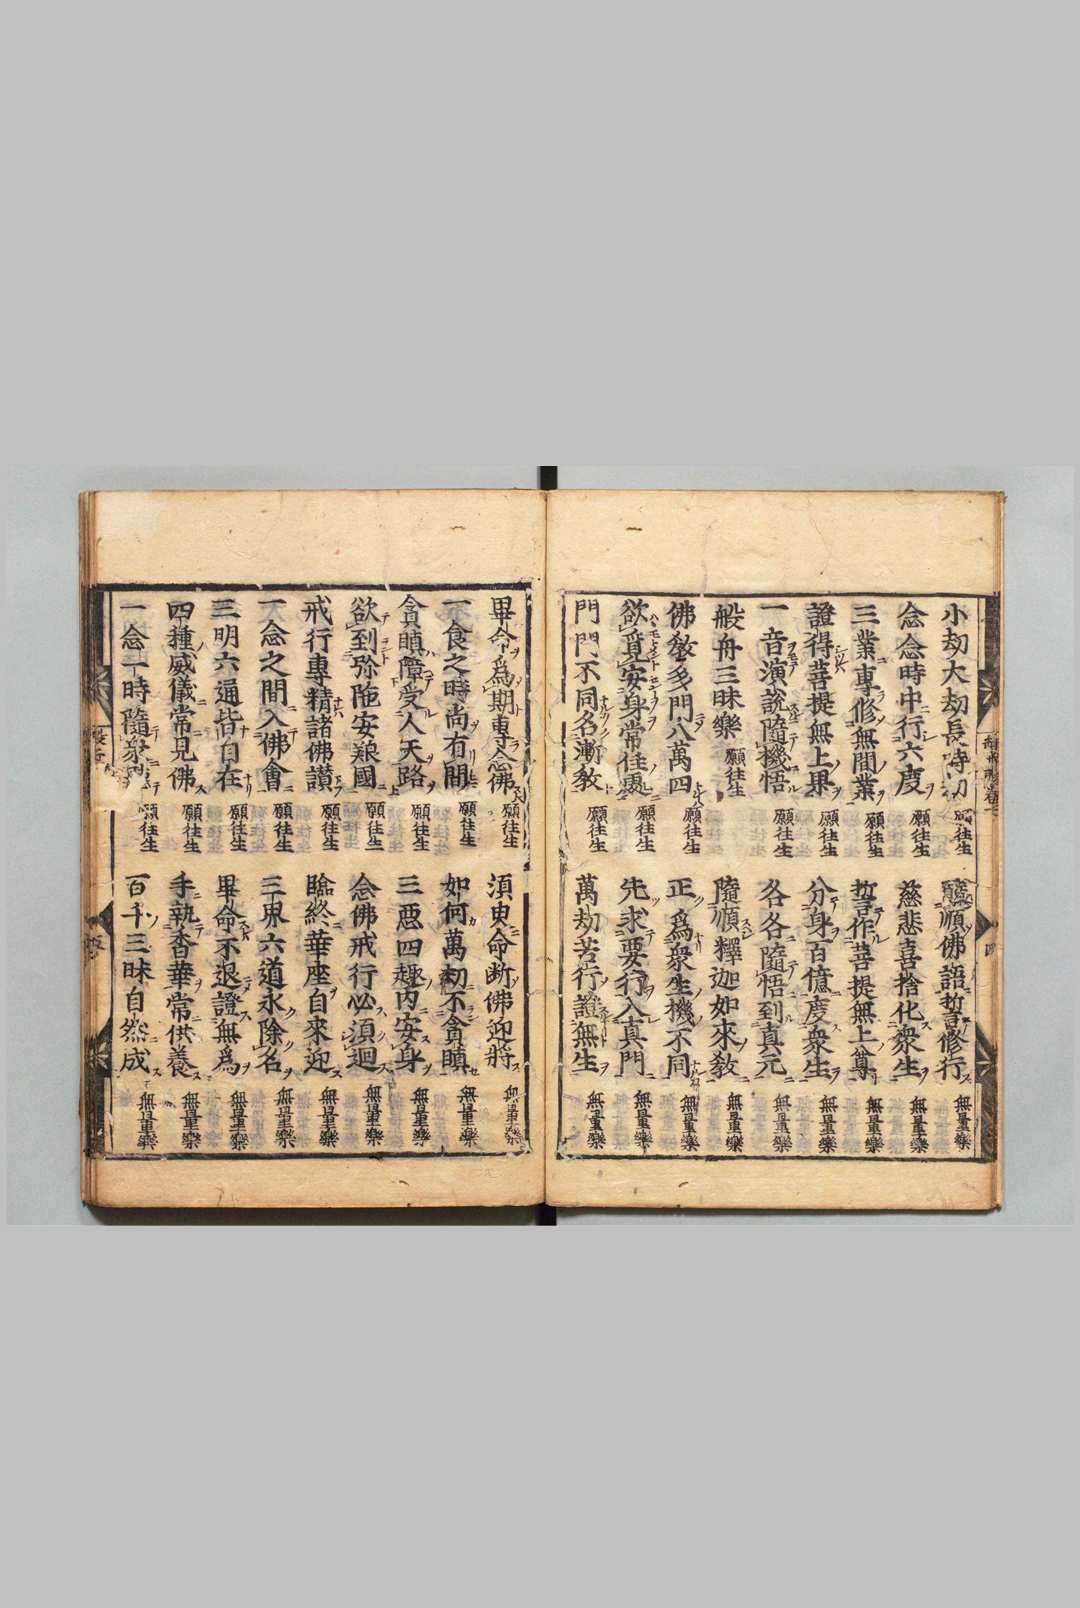 小劫大劫長時劫 願往生 隨順佛語誓修行 無量樂
念念時中行六度 願往生 慈悲喜捨化衆生 無量樂
三業專修無間業 願往生 誓作菩提無上尊 無量樂
證得菩提無上果 願往生 分身百億度衆生 無量樂
一音演說隨機悟 願往生 各各隨悟到真元 無量樂
般舟三昧樂 願往生 隨順釋迦如來敎 無量樂
佛敎多門八萬四 願往生 正爲衆生機不同 無量樂
欲覓安身常住處 願往生 先求要行入真門 無量樂
門門不同名漸敎 願往生 萬劫苦行證無生 無量樂
畢命爲期專念佛 願往生 須臾命斷佛迎將 無量樂
一食之時尚有間 願往生 如何萬劫不貪瞋 無量樂
貪瞋障受人天路 願往生 三惡四趣內安身 無量樂
欲到弥陁安養國 願往生 念佛戒行必須迴 無量樂
戒行專精諸佛讃 願往生 臨終華座自來迎 無量樂
一念之間入佛會 願往生 三界六道永除名 無量樂
三明六通皆自在 願往生 畢命不退證無爲 無量樂
四種威儀常見佛 願往生 手執香華常供養 無量樂
一念一時隨衆 願往生 百千三昧自然成 無量樂